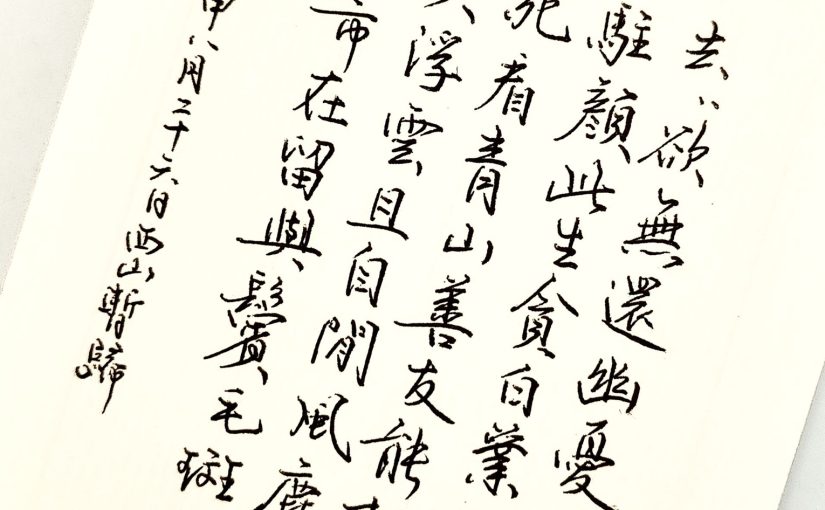 去〻欲無還幽憂
駐顏此生貪白業
死看青山善友能
浮雲且自閒風塵
市在留與鬢毛斑
申八月二十六日西山暫歸